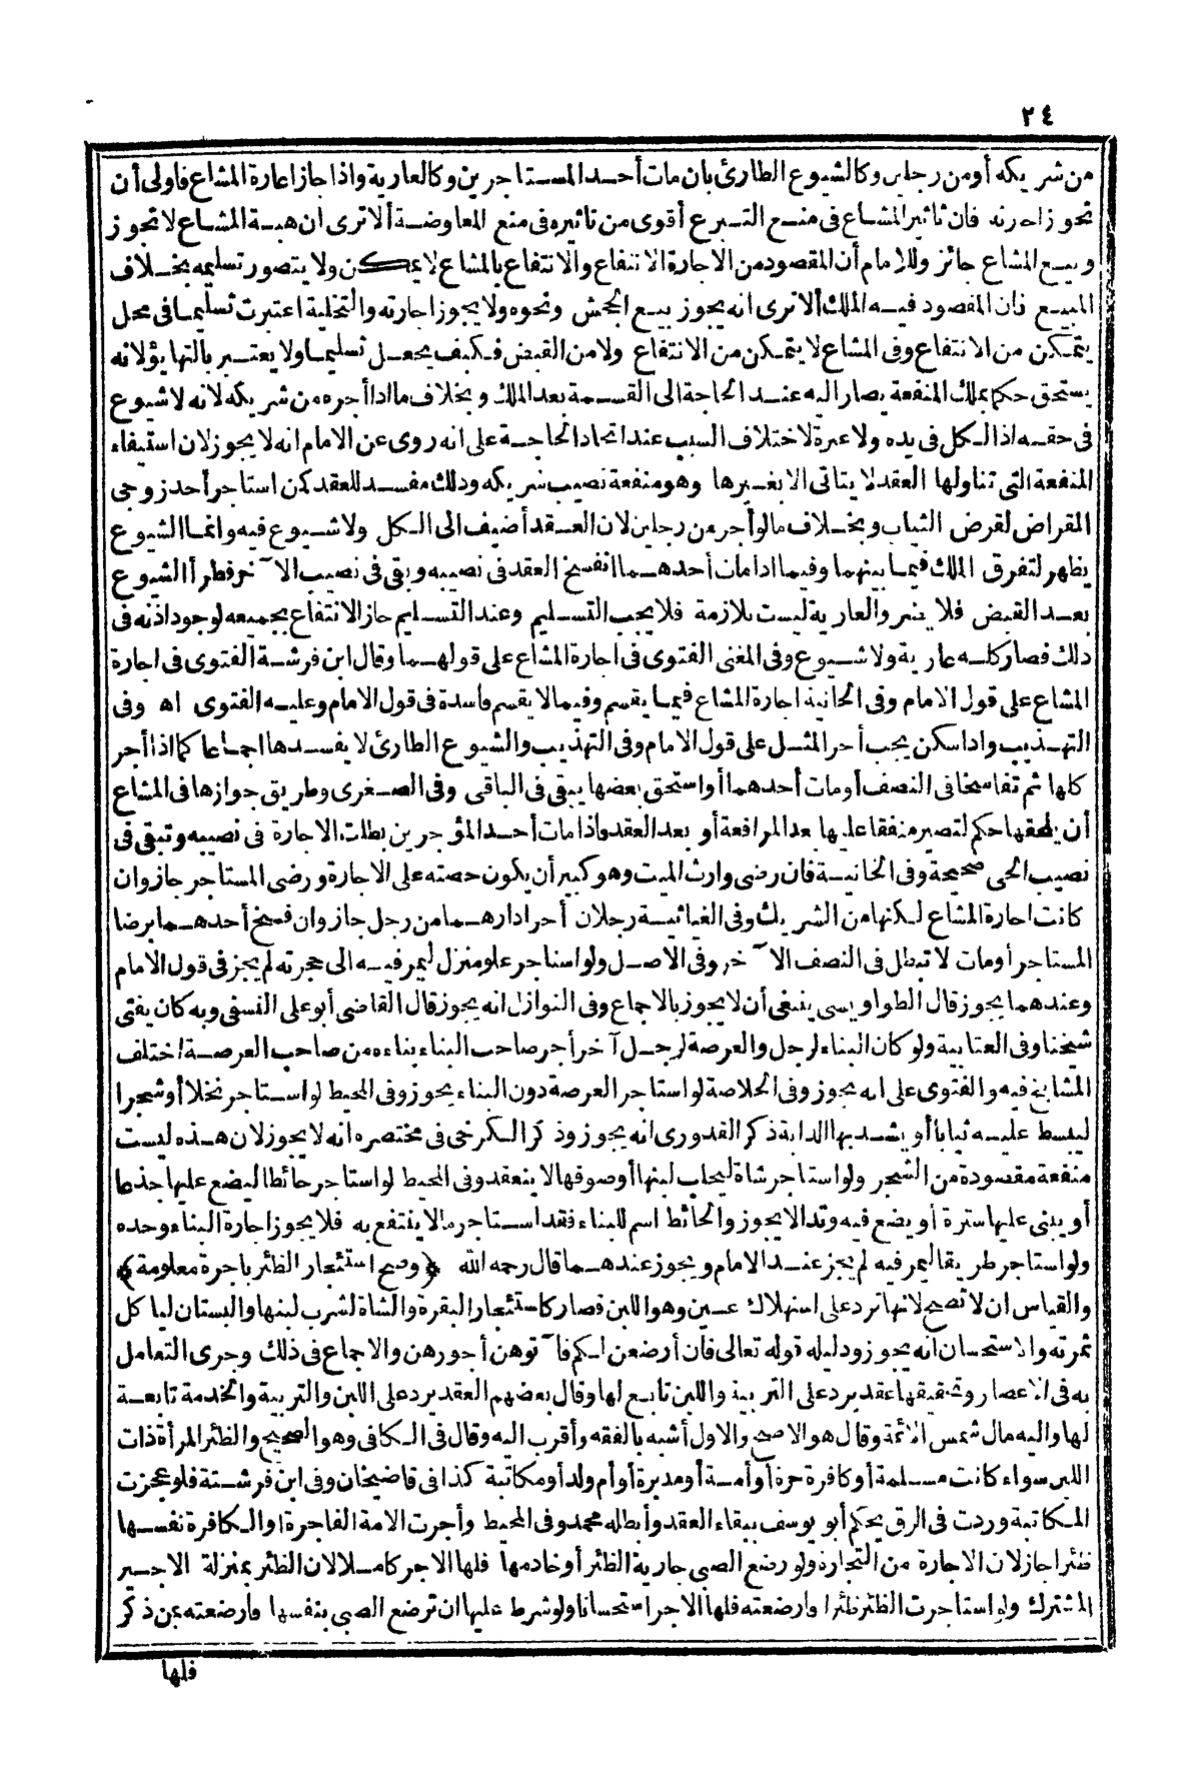 ٢٤
من شريكه أو من رجلين وكالشيوع الطارئ بان مات أحد المستاجرين وكالعارية واذا جاز اعارة المشاع فاولى أن
تجوز اجارته فان تاثير المشاع فى منع التبرع أقوى من تاثيره فى منع المعاوضة ألا ترى ان هبة المشاع لا تجوز
وبيع المشاع جائز وللامام أن المقصود من الاجارة الانتفاع والانتفاع بالمشاع لا يمكن ولا يتصور تسليمه بخلاف
المبيع فان المقصود فيه الملك ألا ترى انه يجوز بيع الجحش ونحوه ولا يجوز اجارته والتخلية اعتبرت تسليما فى محل
يتمكن من الانتفاع وفى المشاع لا يتمكن من الانتفاع ولا من القبض فكيف يجعل تسليما ولا يعتبر بالتهايؤ لانه
يستحق حكم بملك المنفعة يصار اليه عند الحاجة الى القسمة بعد الملك وبخلاف ما اذا أجره من شريكه لانه لا شيوع
فى حقه اذ الكل فى يده ولا عبرة لاختلاف السبب عند اتحاد الحاجة على انه روى عن الامام انه لا يجوز لان استيفاء
المنفعة التى تناولها العقد لا يتاتى الا بغيرها وهو منفعة نصيب شريكه وذلك مفسد للعقد كمن استاجر أحد زوجى
المقراض لقرض الثياب وبخلاف ما لو أجر من رجلين لان العقد أضيف الى الكل ولا شيوع فيه وانما الشيوع
يظهر لتفرق الملك فيما بينهما وفيما اذا مات أحدهما انفسخ العقد فى نصيبه وبقى فى نصيب الآخر فطرأ الشيوع
بعد القبض فلا يضر والعارية ليست بلازمة فلا يجب التسليم وعند التسليم جاز الانتفاع بجميعه لوجود اذنه فى
ذلك فصار كله عارية ولا شيوع وفى المغنى الفتوى فى اجارة المشاع على قولهما وقال ابن فرشة الفتوى فى اجارة
المشاع على قول الامام وفى الخانية اجارة المشاع فيما يقسم وفيما لا يقسم فاسدة فى قول الامام وعليه الفتوى اه وفى
التهذيب واذا سكن يجب أجر المثل على قول الامام وفى التهذيب والشيوع الطارئ لا يفسدها اجماعا كما اذا أجر
كلها ثم تفاسخا فى النصف أو مات أحدهما أو استحق بعضها يبقى فى الباقى وفى الصغرى وطريق جوازها فى المشاع
أن يلحقها حكم لتصير متفقا عليها بعد المرافعة أو بعد العقد واذا مات أحد المؤجرين بطلت الاجارة فى نصيبه وتبقى فى
نصيب الحى صحيحة وفى الخانية فان رضى وارث الميت وهو كبير أن يكون حصته على الاجارة ورضى المستاجر جاز وان
كانت اجارة المشاع لكنها من الشريك وفى الغياثية رجلان أجرا دارهما من رجل جاز وان فسخ أحدهما برضا
المستاجر أو مات لا تبطل فى النصف الآخر وفى الاصل ولو استاجر علو منزل ليمر فيه الى حجرته لم يجز فى قول الامام
وعندهما يجوز قال الطواويسى ينبغى أن لا يجوز بالاجماع وفى النوازل انه يجوز قال القاضى أبو على النسفى وبه كان يفتى
شيخنا وفى العتابية ولو كان البناء لرجل والعرصة لرجل آخر أجر صاحب البناء بناءه من صاحب العرصة اختلف
المشايخ فيه والفتوى على انه يجوز وفى الخلاصة لو استاجر العرصة دون البناء يجوز وفى المحيط لو استاجر نخلا أو شجرا
ليبسط عليه ثيابا أو يشد بها الدابة ذكر القدورى انه يجوز وذكر الكرخى فى مختصره انه لا يجوز لان هذه ليست
منفعة مقصودة من الشجر ولو استاجر شاة ليحلب لبنها أو صوفها لا ينعقد وفى المحيط لو استاجر حائطا ليضع عليها جذعا
أو يبنى عليها سترة أو يضع فيه وتدا لا يجوز والحائط اسم للبناء فقد استاجر ما لا ينتفع به فلا يجوز اجارة البناء وحده
ولو استاجر طريقا ليمر فيه لم يجز عند الامام ويجوز عندهما قال رحمه الله ﴿وصح استئجار الظئر باجرة معلومة﴾
والقياس ان لا تصح لانها ترد على استهلاك عين وهو اللبن فصار كاستئجار البقرة والشاة لشرب لبنها والبستان لياكل
ثمرته والاستحسان انه يجوز ودليله قوله تعالى فان أرضعن لكم فآتوهن أجورهن والاجماع فى ذلك وجرى التعامل
به فى الاعصار وتحقيقها عقد يرد على التربية واللبن تابع لها وقال بعضهم العقد يرد على اللبن والتربية والخدمة تابعة
لها واليه مال شمس الائمة وقال هو الاصح والاول أشبه بالفقه وأقرب اليه وقال فى الكافى وهو الصحيح والظئر المرأة ذات
اللبن سواء كانت مسلمة أو كافرة حرة أو أمة أو مدبرة أو أم ولد أو مكاتبة كذا فى قاضيخان وفى ابن فرشتة فلو عجزت
المكاتبة وردت فى الرق يحكم أبو يوسف ببقاء العقد وأبطله محمد وفى المحيط وأجرت الامة الفاجرة او الكافرة نفسها
ظئرا جاز لان الاجارة من التجارة ولو رضع الصبى جارية الظئر أو خادمها فلها الاجر كاملا لان الظئر بمنزلة الاجير
المشترك ولو استاجرت الظئر ظئرا وارضعته فلها الاجر استحسانا ولو شرط عليها ان ترضع الصبى بنفسها وارضعته بمن ذكر
فلها